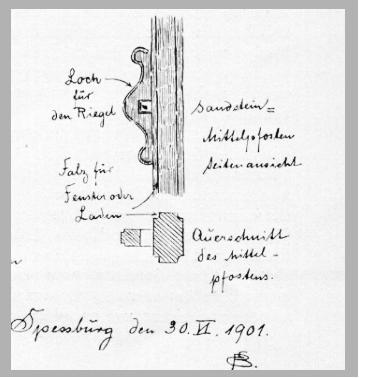 Loch
für
den Riegel
Sandstein=
Mittelpfosten
Seitenansicht
Falz für
Fenster oder
Laden
Querschnitt
des Mittel-
pfostens.
Spessburg den 30. VI. 1901.